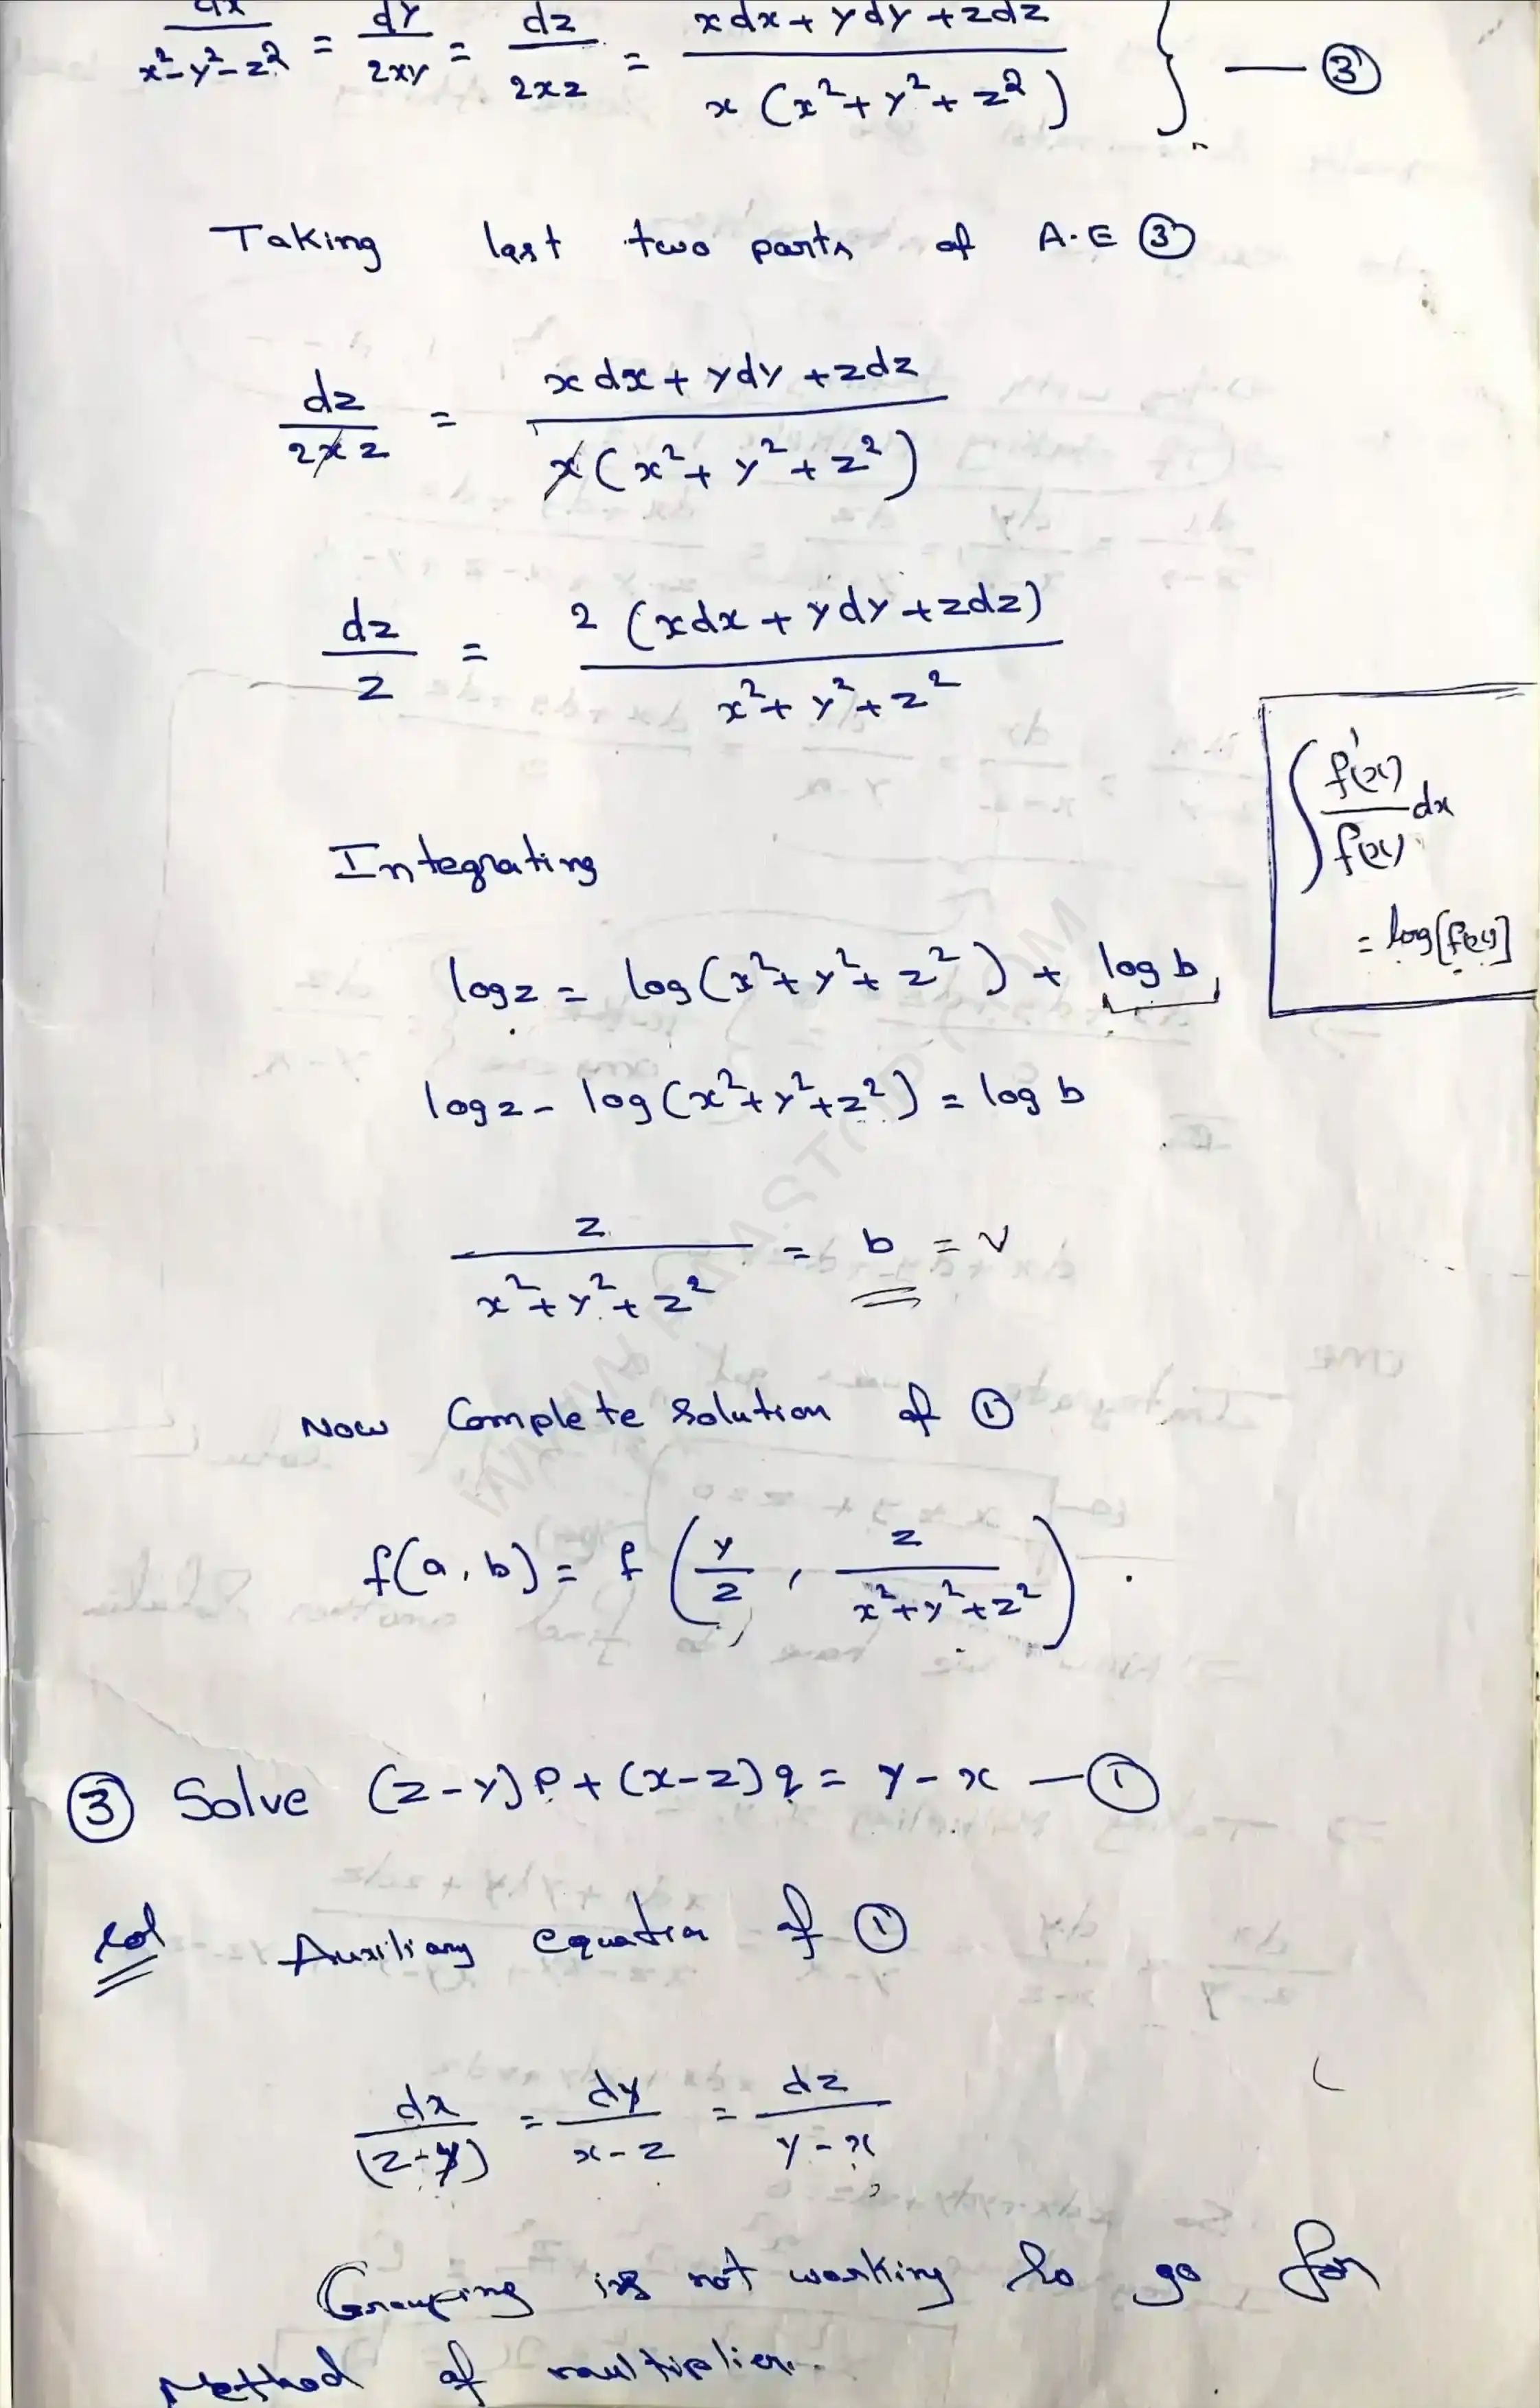 dx/(x²-y²-z²) = dy/2xy = dz/2xz = (xdx + ydy + zdz)/(x(x²+y²+z²)) } — ③
Taking last two parts of A.E ③
dz/2xz = (xdx + ydy + zdz)/(x(x²+y²+z²))
dz/z = 2(xdx + ydy + zdz)/(x²+y²+z²)
∫ f'(x)/f(x) dx
= log[f(x)]
Integrating
log z = log(x²+y²+z²) + log b
log z - log(x²+y²+z²) = log b
z/(x²+y²+z²) = b = v
Now Complete Solution of ①
f(a, b) = f(y/z, z/(x²+y²+z²)).
③ Solve (z-y)p + (x-z)q = y-x — ①
Sol Auxiliary equation of ①
dx/(z-y) = dy/(x-z) = dz/(y-x)
Grouping is not working So go for
Method of multiplier.